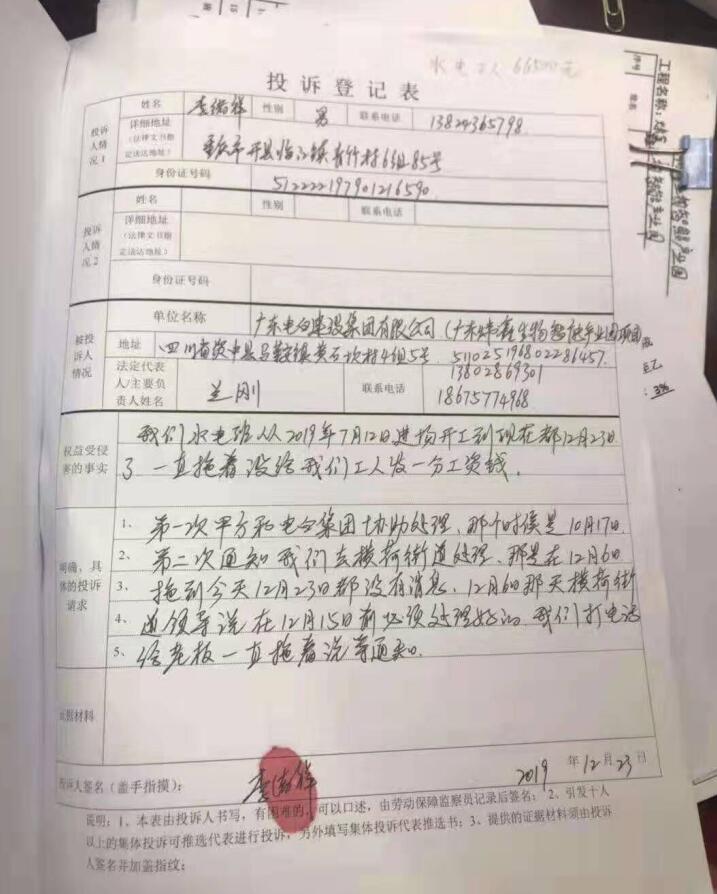 水电工人66500元
投诉登记表
投诉人情况1
姓名 李绪禄 性别 男 联系电话 13824365798
详细地址(法律文书指定送达地址) 重庆市开县临江镇青竹村6组85号
身份证号码 512222197901216590
投诉人情况2
姓名 性别 联系电话
详细地址(法律文书指定送达地址)
身份证号码
被投诉人情况
单位名称 广东电白建设集团有限公司(广东 生物智能产业园项目
地址 四川省资中县 镇黄石坎村4组5号 511025196802286457
法定代表人/主要负责人姓名 兰刚 联系电话 13802869301
18675774968
权益受侵害的事实
我们水电班从2019年7月12日进场开工到现在都12月23日
了一直拖着没给我们工人发一分工资钱.
明确,具体的投诉请求
1、第一次甲方和电白集团协助处理、那个时侯是10月17日
2、第二次通知我们去横荷街道处理、那是在12月6日
3、拖到今天12月23日都没有消息、12月6日那天横荷街
4、道领导说在12月15日前必须处理好的 我们打电话
5、给老板一直拖着说等通知.
证据材料
投诉人签名(盖手指摸):
2019年12月23日
说明:1、本表由投诉人书写,有困难的,可以口述,由劳动保障监察员记录后签名;2、引发十人
以上的集体投诉可推选代表进行投诉,另外填写集体投诉代表推选书;3、提供的证据材料须由投诉
人签名并加盖指纹;
工程名称:
序号
姓名
智能产业园
3%